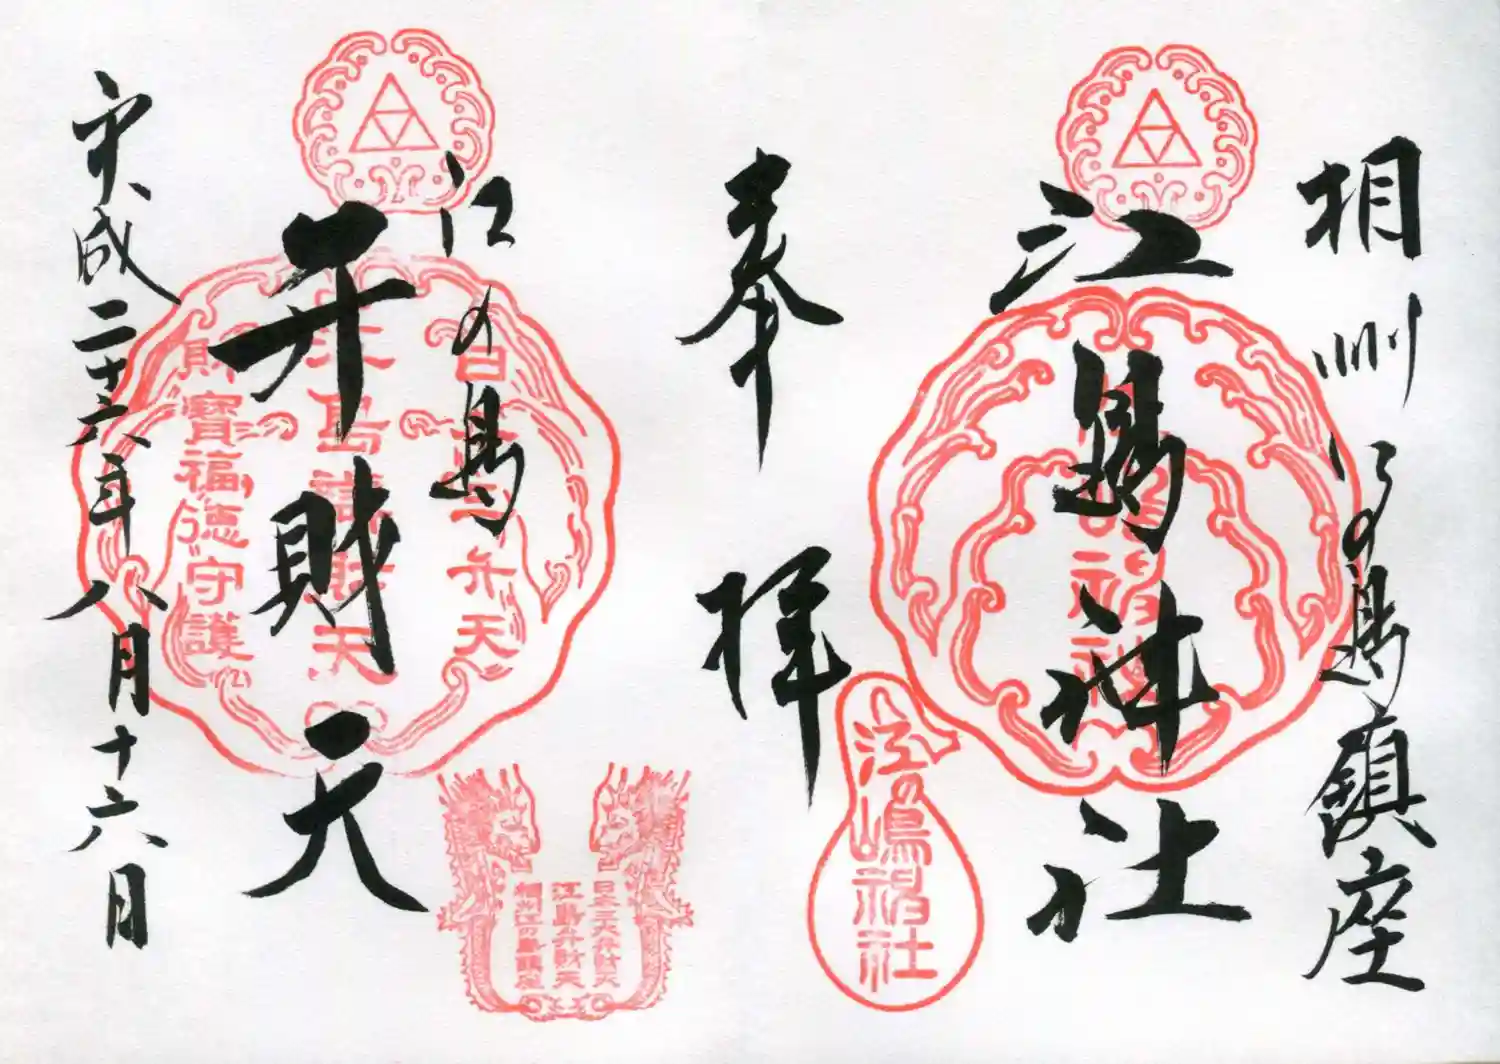 相州江の島鎮座
江島神社
奉拝
江嶋神社
江の島
弁財天
平成二十六年八月十六日
財寶福徳守護
日本三大弁財天
江島弁財天
相州江の島鎮座